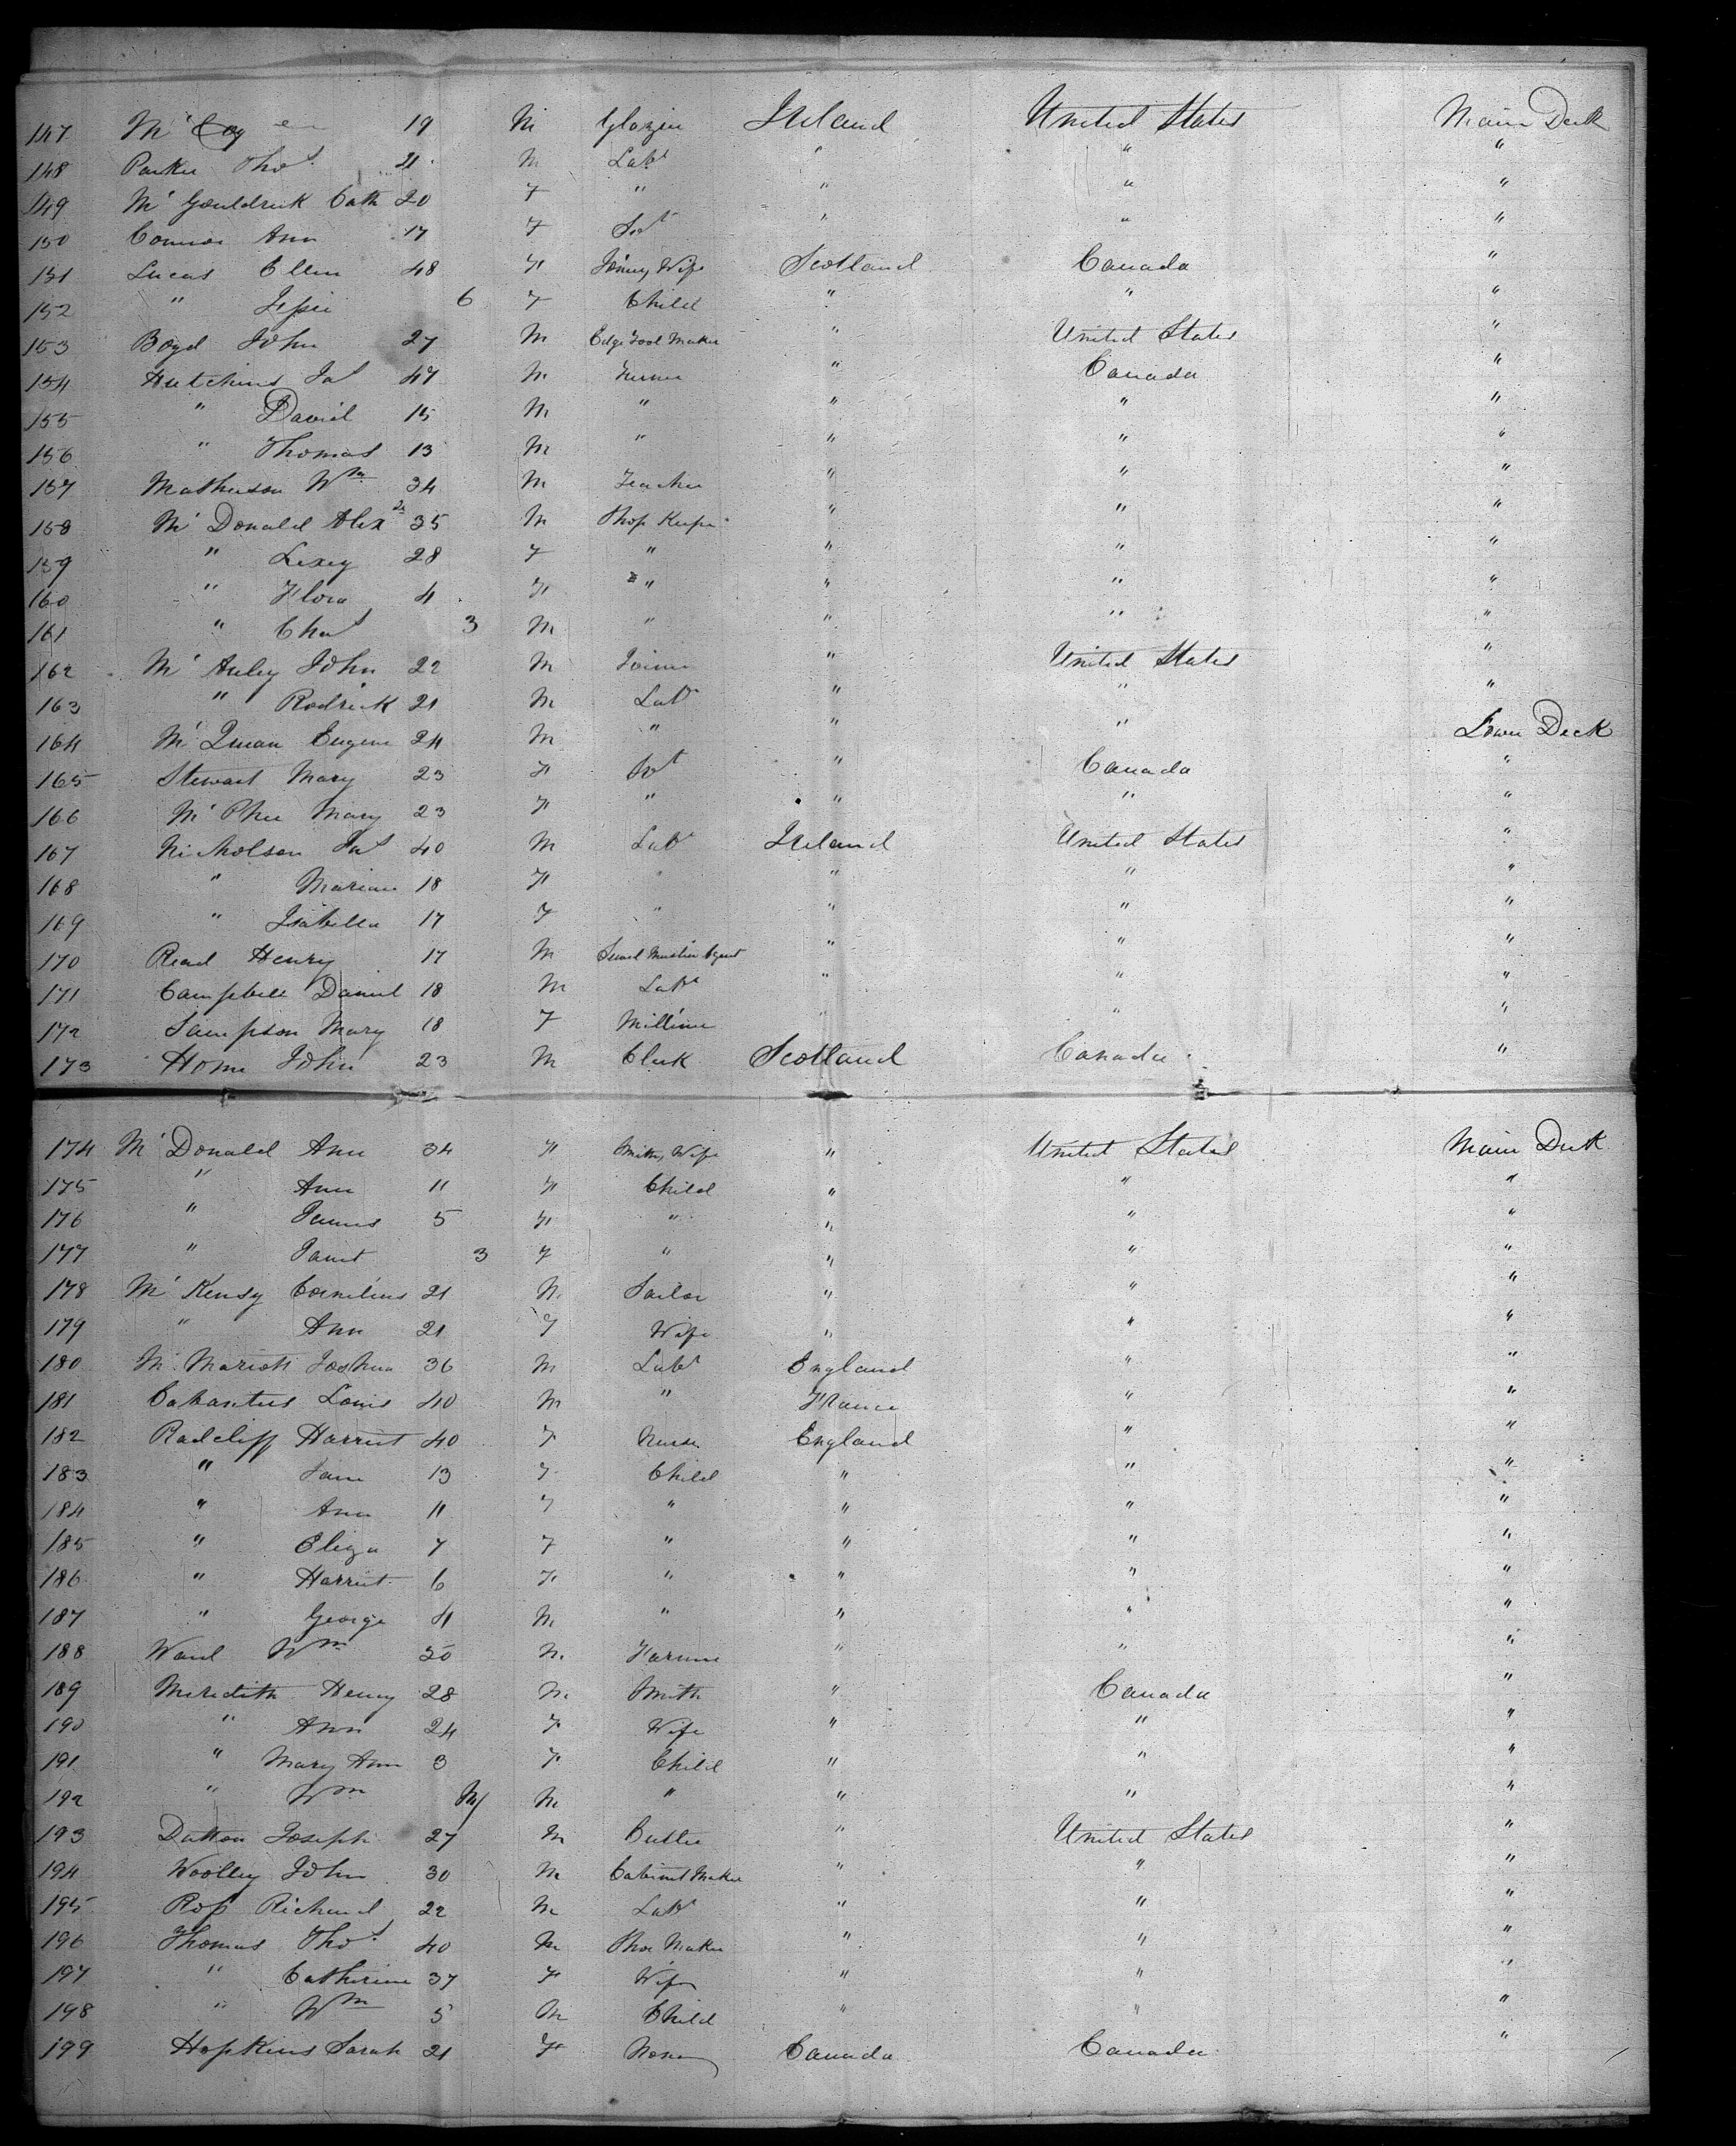 147 Mc Coy 19 M Glazier Ireland United States Main Deck
148 Parker Thos 21 M Labr " " "
149 Mc Gouldrick Cath 20 F " " " "
150 Connor Ann 17 F Sert " " "
151 Lucas Ellen 48 F Wife Scotland Canada "
152 " Jessie 6 F Child " " "
153 Boyd John 27 M Edge Tool Maker " United States "
154 Hutchins Jas 47 M " Canada "
155 " David 15 M " " " "
156 " Thomas 13 M " " " "
157 Matheson Wm 34 M Teacher " " "
158 Mc Donald Alexr 35 M Shop Keeper " " "
159 " Lexey 28 F " " " "
160 " Flora 4 F " " " "
161 " Chas 3 M " " " "
162 Mc Auley John 22 M Joiner " United States "
163 " Rodrick 21 M Labr " " "
164 Mc Eugene 24 M " " " Lower Deck
165 Stewart Mary 23 F Sert " Canada "
166 Mc Phee Mary 23 F " " " "
167 Nicholson Jas 40 M Labr Ireland United States "
168 " Marian 18 F " " " "
169 " Isabella 17 F " " " "
170 Read Henry 17 M Sewed Muslin Agent " " "
171 Campbell Daniel 18 M Labr " " "
172 Sampson Mary 18 F Milliner " " "
173 Home John 23 M Clerk Scotland Canada "
174 Mc Donald Ann 34 F Smiths Wife " United States Main Deck
175 " Ann 11 F Child " " "
176 " James 5 F " " " "
177 " Janet 3 F " " " "
178 Mc Kensy Cornelius 21 M Sailor " " "
179 " Ann 21 F Wife " " "
180 Mc Marish Joshua 36 M Labr England " "
181 Cabantus Louis 40 M " France " "
182 Radcliff Harriet 40 F Nurse England " "
183 " Jane 13 F Child " " "
184 " Ann 11 F " " " "
185 " Eliza 7 F " " " "
186 " Harriet 6 F " " " "
187 " George 4 M " " " "
188 Ward Wm 50 M Farmer " " "
189 Meredith Henry 28 M Smith " Canada "
190 " Ann 24 F Wife " " "
191 " Mary Ann 3 F Child " " "
192 " Wm M " " " "
193 Dutton Joseph 27 M Butler " United States "
194 Woolley John 30 M Cabinet Maker " " "
195 Ross Richard 22 M Labr " " "
196 Thomas Thos 40 M Shoe Maker " " "
197 " Catherine 37 F Wife " " "
198 " Wm 5 M Child " " "
199 Hopkins Sarah 21 F None Canada Canada "